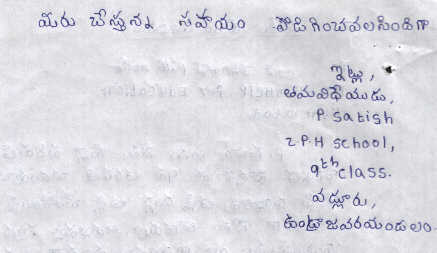 మీరు చేస్తున్న సహాయం పొడిగించవలసిందిగా
ఇట్లు,
తమవిధేయుడు,
P. Satish
Z.P.H School,
9th class.
వడ్లూరు,
ఉండ్రాజవరయండలం.